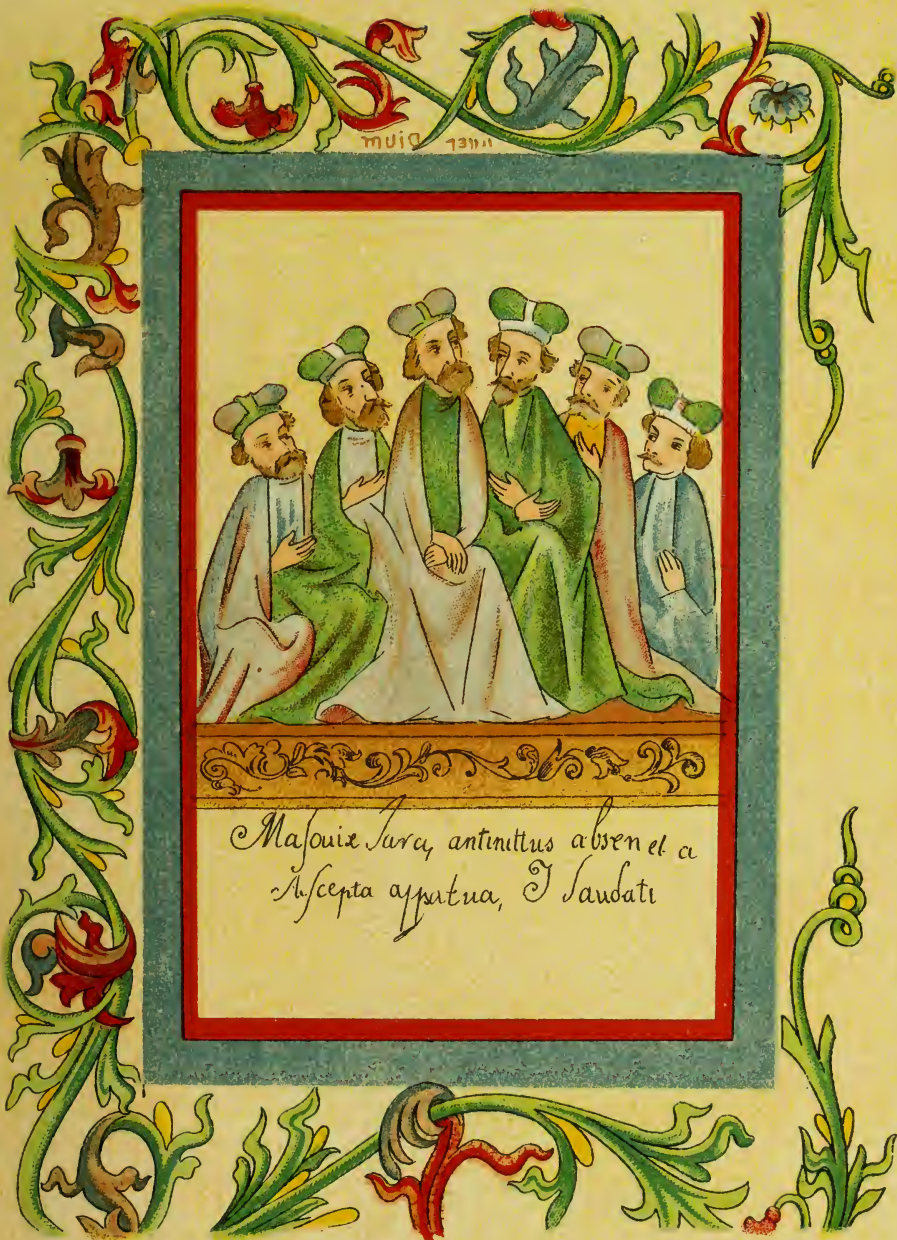 Maſouix Jura, antinittus absen et a
Aſcepta appatua, I Saudati